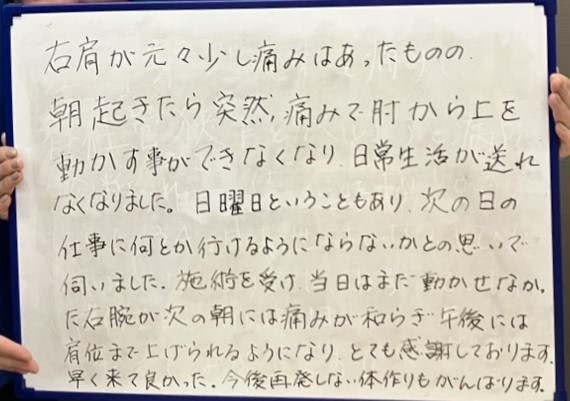 右肩が元々少し痛みはあったものの、
朝起きたら突然、痛みで肘から上を
動かす事ができなくなり、日常生活が送れ
なくなりました。日曜日ということもあり、次の日の
仕事に何とか行けるようにならないかとの思いで
伺いました。施術を受け、当日はまだ動かせなかっ
た右腕が次の朝には痛みが和らぎ午後には
肩位まで上げられるようになり、とても感謝しております。
早く来て良かった。今後再発しない体作りもがんばります。